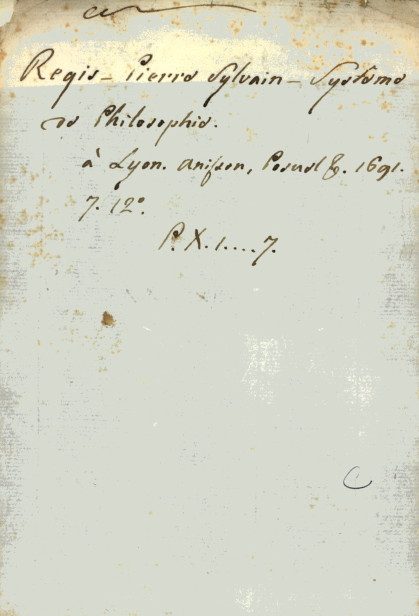 Regis - Pierre Sylvain - Systeme
de Philosophie.
à Lyon. Anisson, Posuel &. 1691.
7. 12º.
P. X. 1....7.